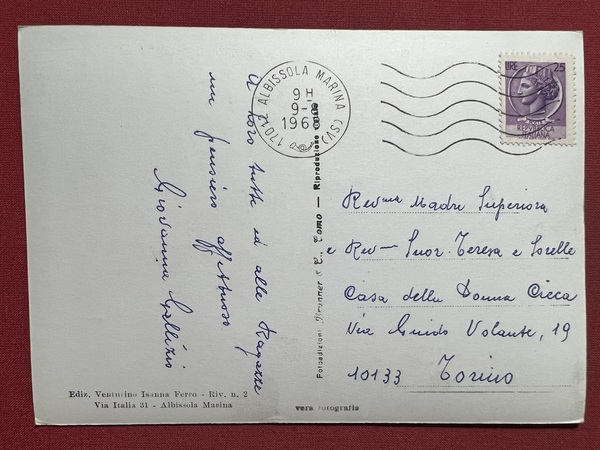 A loro tutte ed alle Ragazze
un pensiero affettuoso
Giovanna Gallizio
17011 ALBISSOLA MARINA (SV)
9H
9-
196
LIRE 25
POSTE
REPVBBLICA
ITALIANA
Rev.ma Madre Superiora
e Rev— Suor Teresa e Sorelle
Casa della Donna Cieca
Via Guido Volante, 19
10133 Torino
Fotoedizioni Brunner & C. Como — Riproduzione vietata
Ediz. Venturino Isanna Ferro - Riv. n. 2
Via Italia 31 - Albissola Marina
vera fotografia